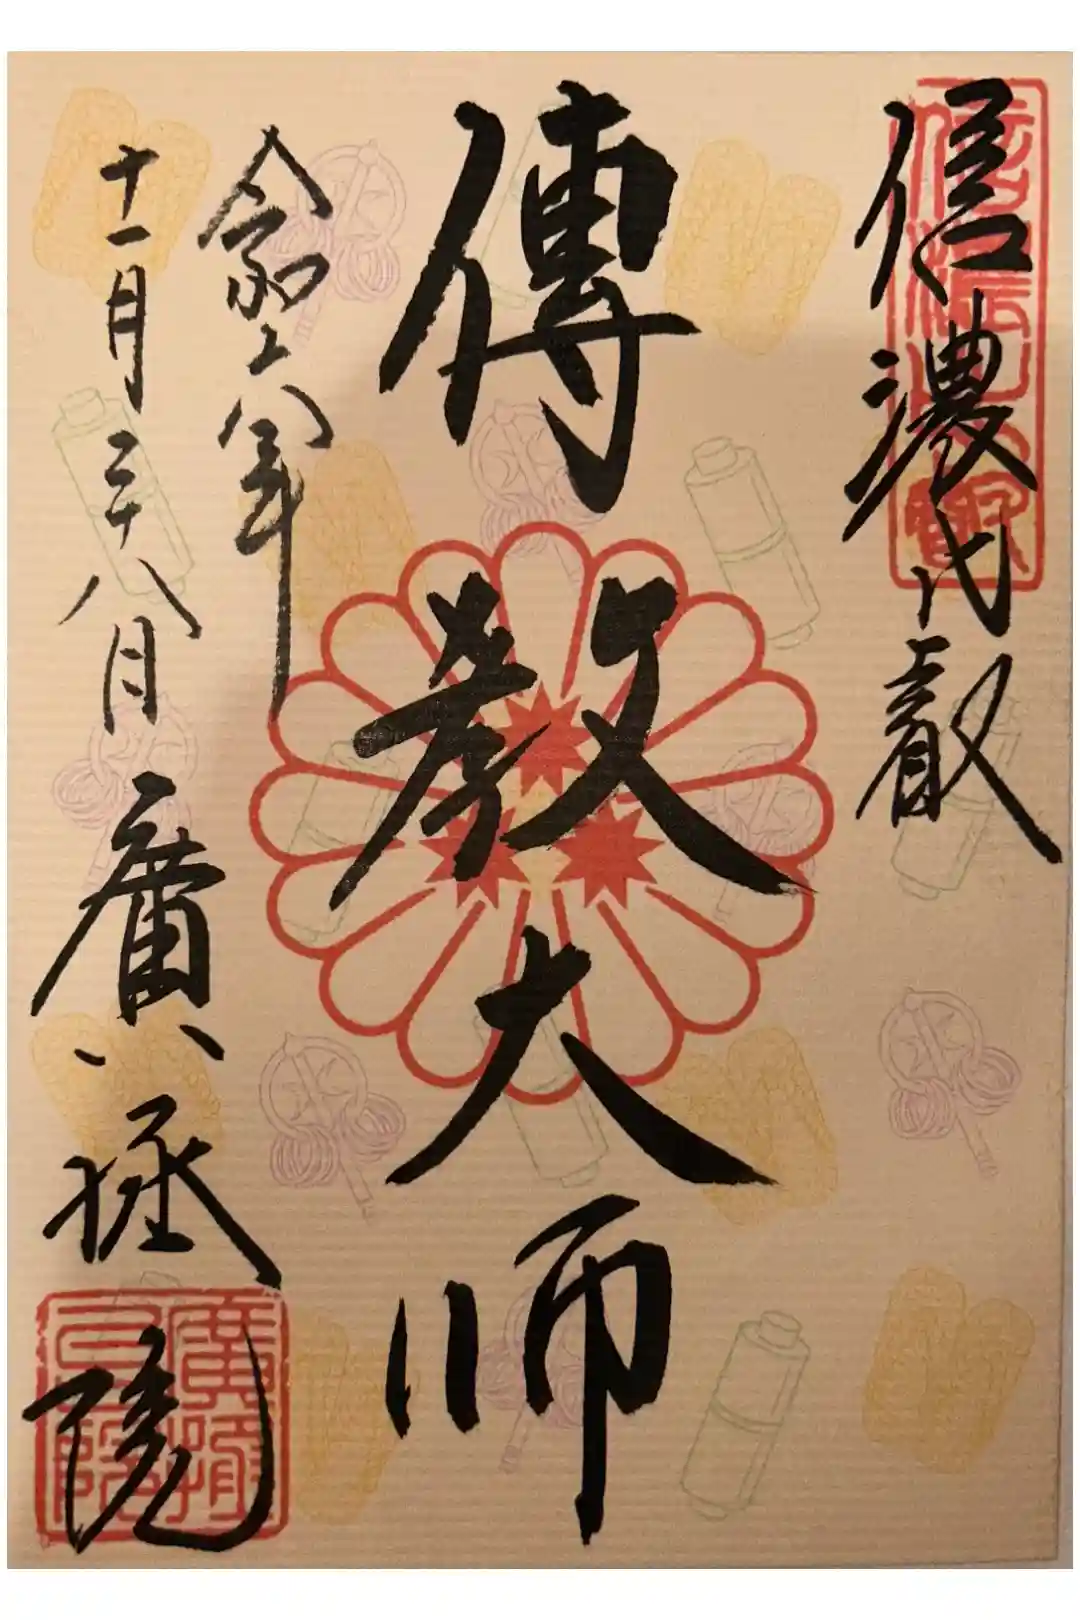 信濃比叡
傳教大師
令和六年
十一月二十八日 廣拯院